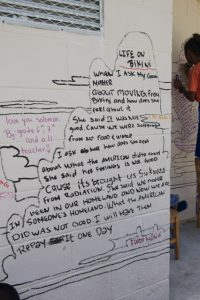 LIFE ON
BIKINI
WHEN I ASK My GRAN
MOTHER
ABOUT MOVING FROM
BIKINI and how does she
feel about it
She SAID IT WAS NOT
GOOD, CAUSE WE WERE SUFFERING
FROM NO FOOD & WATER
I ASK her how does she feel
About What the AMERICAN did
She said her feelings is not good
'CAUSE its brought us SICKNESS
FROM RADIATION. She said we never
been IN OUR HOMELAND AND NOW WE ARE
IN SOMEONE'S HOMELAND. What the AMERICAN
DID WAS NOT GOOD. I WILL MAKE THEM
REPAY IT ONE DAY
I love you solomon
By: grade 6th, 7th
and all
teachers